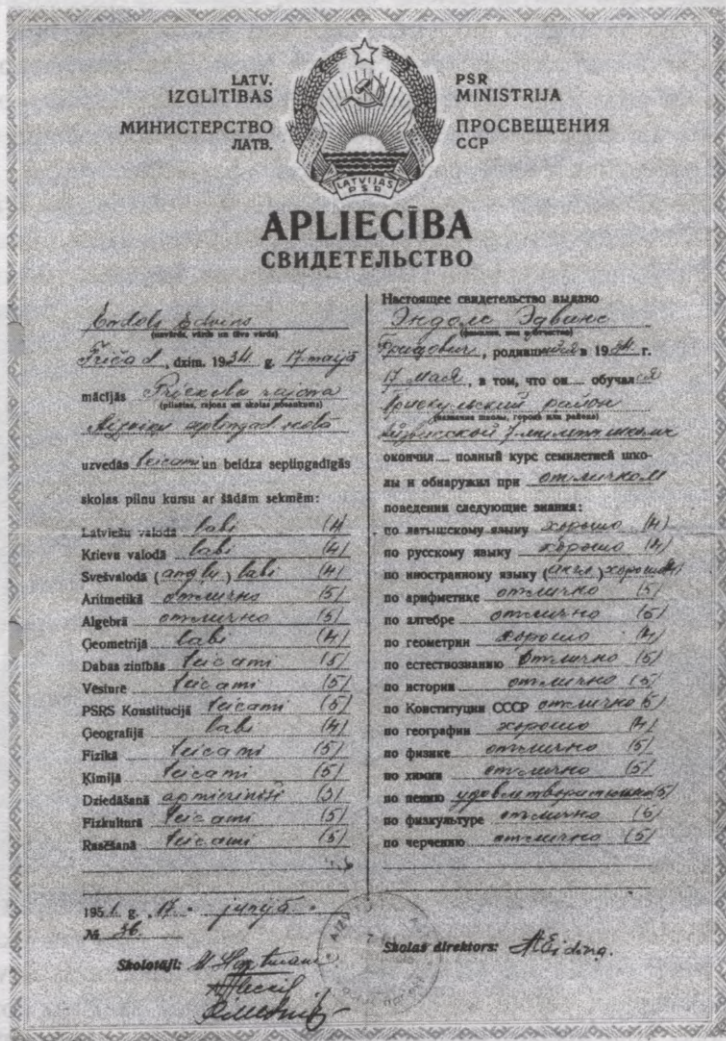 LATV. PSR
IZGLĪTĪBAS MINISTRIJA
МИНИСТЕРСТВО ПРОСВЕЩЕНИЯ
ЛАТВ. ССР
LATVIJAS
PSR
APLIECĪBA
СВИДЕТЕЛЬСТВО
Endols Edvins
(uzvārds, vārds un tēva vārds)
Friča d., dzim. 1934. g. 17. maijā
mācījās Priekules rajona
(pilsētas, rajona un skolas nosaukums)
septiņgad. skolā
uzvedās teicami un beidza septiņgadīgās
skolas pilnu kursu ar šādām sekmēm:
Latviešu valodā labi (4)
Krievu valodā labi (4)
Svešvalodā (angļu) labi (4)
Aritmetikā отлично (5)
Algebrā отлично (5)
Ģeometrijā labi (4)
Dabas zinībās teicami (5)
Vēsturē teicami (5)
PSRS Konstitucijā teicami (5)
Ģeografijā labi (4)
Fizikā teicami (5)
Ķīmijā teicami (5)
Dziedāšanā apmierinoši (3)
Fizkulturā teicami (5)
Rasēšanā teicami (5)
1951. g. 17. jūnijā
№ 36.
Skolotāji:
Настоящее свидетельство выдано
Эндолс Эдвинс
(фамилия, имя и отчество)
родившийся в 1934 г.
17 мая, в том, что он обучался
Приекульский район
(название школы, города или района)
окончил полный курс семилетней шко-
лы и обнаружил при отличном
поведении следующие знания:
по латышскому языку хорошо (4)
по русскому языку хорошо (4)
по иностранному языку (англ.) хорошо (4)
по арифметике отлично (5)
по алгебре отлично (5)
по геометрии хорошо (4)
по естествознанию отлично (5)
по истории отлично (5)
по Конституции СССР отлично (5)
по географии хорошо (4)
по физике отлично (5)
по химии отлично (5)
по пению удовлетворительно (3)
по физкультуре отлично (5)
по черчению отлично (5)
Skolas direktors: